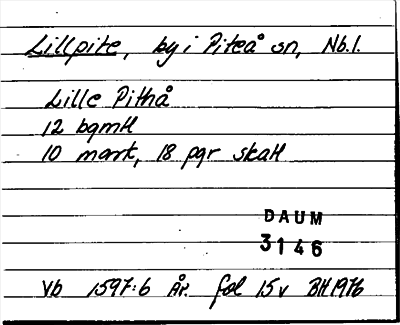 Lillpite, by i Piteå sn, Nb.l.
Lille Pithå
12 bgmtl
10 mark, 18 pgr skatt
DAUM
3146
Vb 1597:6 År. fol 15v BH 1976